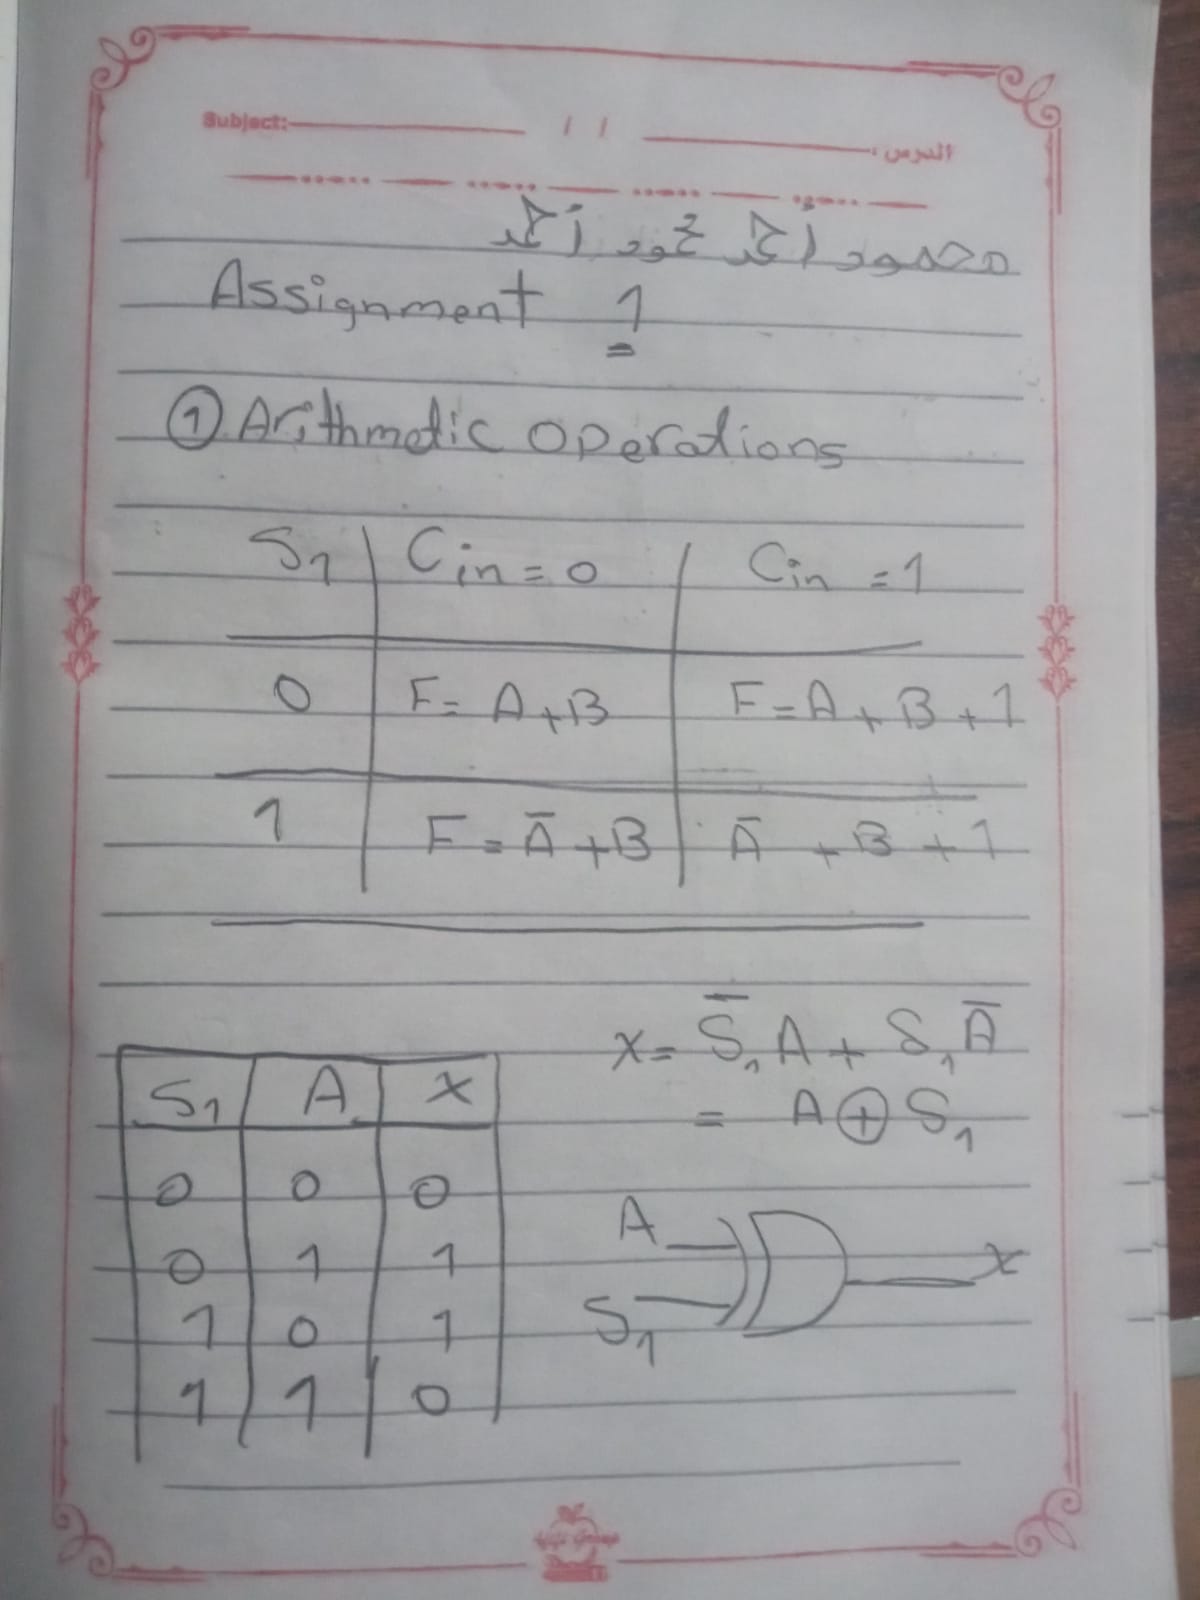 Subject: / / الدرس:
محمود أحمد محمود أحمد
Assignment 1
① Arithmetic Operations
S1 | Cin = 0 | Cin = 1
0 | F = A + B | F = A + B + 1
1 | F = Ā + B | Ā + B + 1
x = S̄1 A + S1 Ā
= A ⊕ S1
S1 A x
0 0 0
0 1 1
1 0 1
1 1 0
A
S1
x